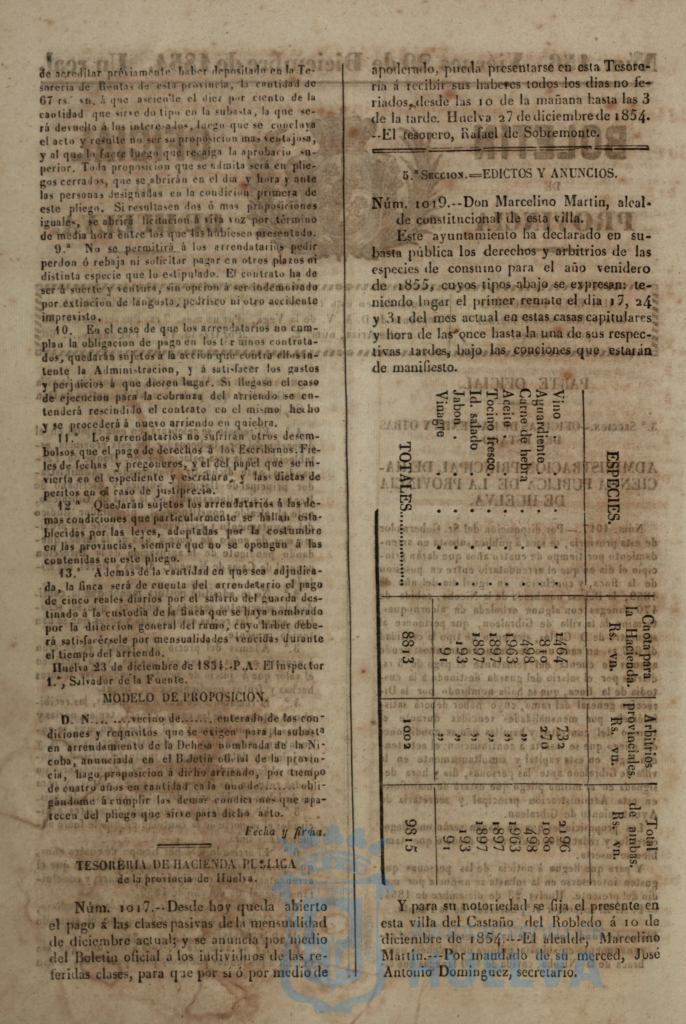 de acreditar préviamente haber depositado en la Te-
soreria de Rentas de esta provincia, la cantidad de
67 rs. vn. á que asciende el diez por ciento de la
cantidad que sirve de tipo en la subasta, la que se-
rá devuelta á los interesados, luego que se concluya
el acto y resulte no ser su proposicion mas ventajosa,
y al que lo fuere luego que recaiga la aprobacio su-
perior. Toda proposicion que se admita será en plie-
gos cerrados, que se abrirán en el dia y hora y ante
las personas designadas en la condicion primera de
este pliego. Si resultasen dos ó mas proposiciones
iguales, se abrirá licitacion á viva voz por término
de media hora entre los que las hubiesen presentado.
9.ª No se permitirá á los arrendatarios pedir
perdon ó rebaja ni solicitar pagar en otros plazos ni
distinta especie que lo estipulado. El contrato ha de
ser á suerte y ventura, sin opcion á ser indemnizado
por extincion de langosta, pedrisco ni otro accidente
imprevisto.
10. En el caso de que los arrendatarios no cum-
plan la obligacion de pago en los terminos contrata-
dos, quedarán sujetos á la accion que contra ellos in-
tente la Administracion, y á satisfacer los gastos
y perjuicios á que dieren lugar. Si llegase el caso
de ejecucion para la cobranza del arriendo se en-
tenderá rescindido el contrato en el mismo hecho
y se procederá á nuevo arriendo en quiebra.
11.ª Los arrendatarios no sufrirán otros desem-
bolsos que el pago de derechos á los Escribanos, Fie-
les de fechas y pregoneros, y el del papel que se in-
vierta en el espediente y escritura, y las dietas de
peritos en el caso de justiprecio.
12ª Quedarán sujetos los arrendatarios á las de-
mas condiciones que particularmente se hallan esta-
blecidas por las leyes, adoptadas por la costumbre
en las provincias, siempre que no se opongan á las
contenidas en este pliego.
13.ª Ademas de la cantidad en que sea adjudica-
da, la finca será de cuenta del arrendatario el pago
de cinco reales diarios por el salario del guarda des-
tinado á la custodia de la finca que se haya nombrado
por la direccion general del ramo, cuyo haber debe-
rá satisfacérsele por mensualidades vencidas durante
el tiempo del arriendo.
Huelva 23 de diciembre de 1854.-P.A. El inspector
1.º, Salvador de la Fuente.
MODELO DE PROPOSICION.
D. N.... .....vecino de....... enterado de las con-
diciones y requisitos que se exigen para la subasta
en arrendamiento de la Dehesa nombrada de la Ni-
coba, anunciada en el Boletin oficial de la provin-
cia, hago proposicion á dicho arriendo, por tiempo
de cuatro años en cantidad cada uno de....... obli-
gándome á cumplir las demas condiciones que apa-
recen del pliego que sirve para dicho acto.
Fecha y firma.
TESORERIA DE HACIENDA PUBLICA
de la provincia de Huelva.
Núm. 1017.--Desde hoy queda abierto
el pago á las clases pasivas de la mensualidad
de diciembre actual; y se anuncia por medio
del Boletin oficial á los individuos de las re-
feridas clases, para que por sí ó por medio de
apoderado, pueda presentarse en esta Tesore-
ría á recibir sus haberes todos los dias no fe-
riados, desde las 10 de la mañana hasta las 3
de la tarde. Huelva 27 de diciembre de 1854.
--El tesorero, Rafael de Sobremonte.
5.ª SECCION.=EDICTOS Y ANUNCIOS.
Núm. 1019.--Don Marcelino Martin, alcal-
de constitucional de esta villa.
Este ayuntamiento ha declarado en su-
basta pública los derechos y arbitrios de las
especies de consumo para el año venidero
de 1855, cuyos tipos abajo se expresan: te-
niendo lugar el primer remate el dia 17, 24
y 31 del mes actual en estas casas capitulares
y hora de las once hasta la una de sus respec-
tivas tardes, bajo las conciones que estarán
de manifiesto.
ESPECIES. Cuota para la Hacienda. Rs. vn. Arbitrios provinciales. Rs. vn. Total de ambas. Rs. vn.
Vino. 1464 732 2196
Aguardiente. 810 270 1080
Carne de hebra 498 ,, 498
Aceite. 1963 ,, 1963
Tocino fresco. 1897 ,, 1897
Id. salado 1897 ,, 1897
Jabon. 193 ,, 193
Vinagre 91 ,, 91
TOTALES. 8813 1002 9815
Y para su notoriedad se fija el presente en
esta villa del Castaño del Robledo á 10 de
diciembre de 1854.--El alcalde, Marcelino
Martin.---Por mandado de su merced, José
Antonio Dominguez, secretario.
HUELVA